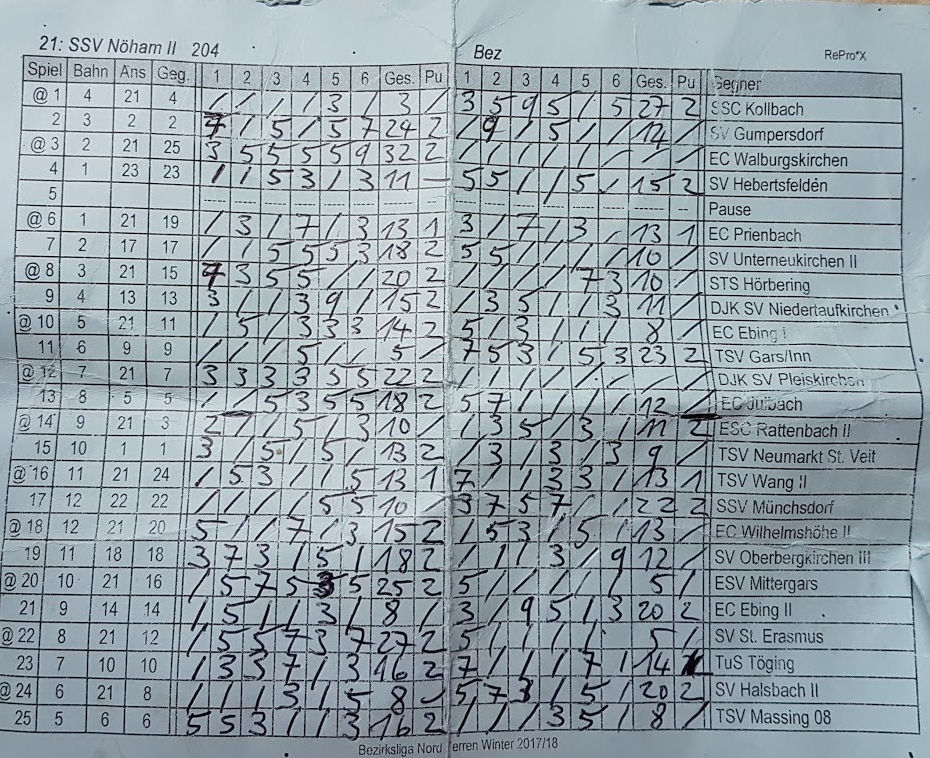 21: SSV Nöham II 204 Bez RePro*X
Spiel Bahn Ans Geg. 1 2 3 4 5 6 Ges. Pu 1 2 3 4 5 6 Ges. Pu Gegner
@ 1 4 21 4 / / / / 3 / 3 / 3 5 9 5 / 5 27 2 SSC Kollbach
2 3 2 2 7 / 5 / 5 7 24 2 / 9 / 5 / / 14 / SV Gumpersdorf
@ 3 2 21 25 3 5 5 5 5 9 32 2 / / / / / / / / EC Walburgskirchen
4 1 23 23 / / 5 3 / 3 11 – 5 5 / / 5 / 15 2 SV Hebertsfelden
5 Pause
@ 6 1 21 19 / 3 / 7 / 3 13 1 3 / 7 / 3 / 13 1 EC Prienbach
7 2 17 17 / / 5 5 5 3 18 2 5 5 / / / / 10 / SV Unterneukirchen II
@ 8 3 21 15 7 3 5 5 / / 20 2 / / / / 7 3 10 / STS Hörbering
9 4 13 13 3 / / 3 9 / 15 2 / 3 5 / / 3 11 / DJK SV Niedertaufkirchen
@ 10 5 21 11 / 5 / 3 3 3 14 2 5 / 3 / / / 8 / EC Ebing I
11 6 9 9 / / / 5 / / 5 / 7 5 3 / 5 3 23 2 TSV Gars/Inn
@ 12 7 21 7 3 3 3 3 5 5 22 2 / / / / / / / / DJK SV Pleiskirchen
13 8 5 5 / / 5 3 5 5 18 2 5 7 / / / / 12 / EC Julbach
@ 14 9 21 3 2 / / 5 / 3 10 / / 3 5 / 3 / 11 2 ESC Rattenbach II
15 10 1 1 3 / 5 / 5 / 13 2 / 3 / 3 / 3 9 / TSV Neumarkt St. Veit
@ 16 11 21 24 / 5 3 / / 5 13 1 7 / / 3 3 / 13 1 TSV Wang II
17 12 22 22 / / / / 5 5 10 / 3 7 5 7 / / 22 2 SSV Münchsdorf
@ 18 12 21 20 5 / / 7 / 3 15 2 / 5 3 / 5 / 13 / EC Wilhelmshöhe II
19 11 18 18 3 7 3 / 5 / 18 2 / / / 3 / 9 12 / SV Oberbergkirchen III
@ 20 10 21 16 / 5 7 5 3 5 25 2 5 / / / / / 5 / ESV Mittergars
21 9 14 14 / 5 / / 3 / 8 / 3 / 9 5 / 3 20 2 EC Ebing II
@ 22 8 21 12 / 5 5 7 3 7 27 2 5 / / / / / 5 / SV St. Erasmus
23 7 10 10 / 3 3 7 / 3 16 2 7 / / / 7 / 14 TuS Töging
@ 24 6 21 8 / / / 3 / 5 8 – 5 7 3 / 5 / 20 2 SV Halsbach II
25 5 6 6 5 5 3 / / 3 16 2 / / / 3 5 / 8 / TSV Massing 08
Bezirksliga Nord Winter 2017/18